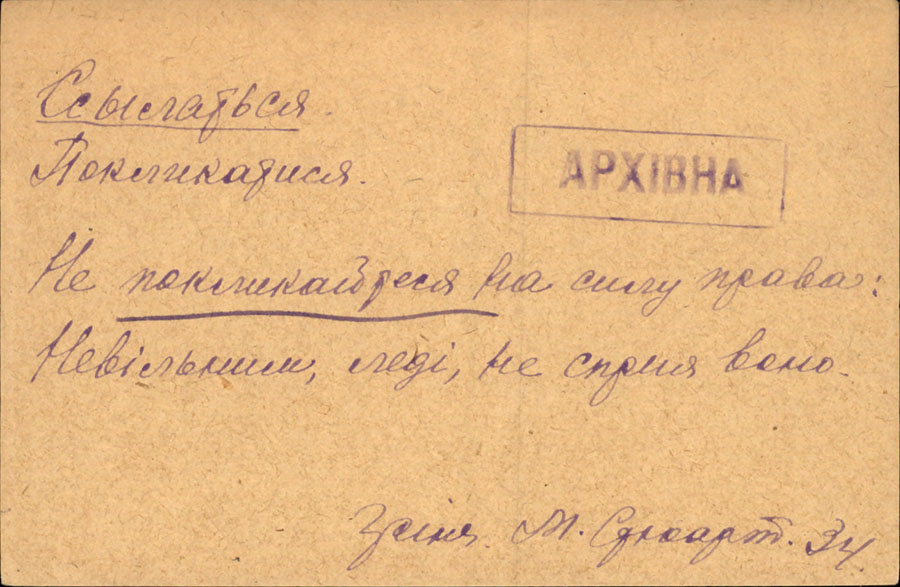 Ссылаться.
Покликатися.
АРХІВНА
Не покликайтеся на силу права:
Невільним, леді, не сприя воно.
М. Стюарт. 34.